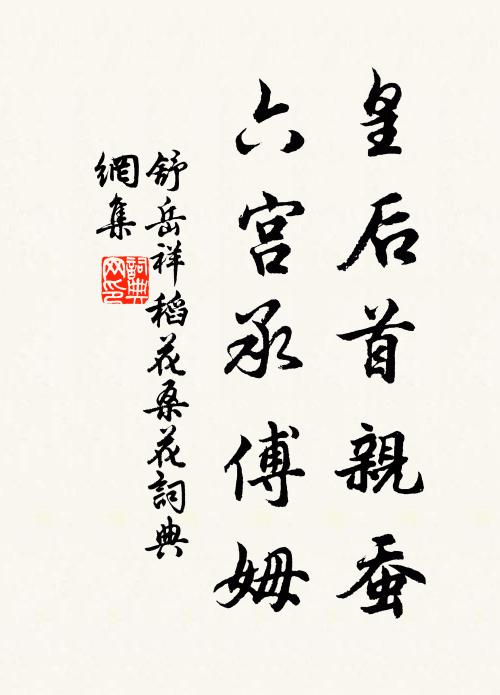 皇后首親蚕
六宮承傅姆
舒岳祥稻花桑花詞典
網集
詞典網印